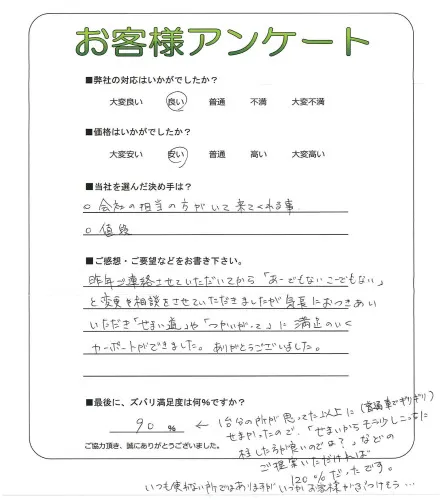 お客様アンケート
■弊社の対応はいかがでしたか？
大変良い 良い 普通 不満 大変不満
■価格はいかがでしたか？
大変安い 安い 普通 高い 大変高い
■当社を選んだ決め手は？
○ 会社の担当の方がいて来てくれる事
○ 値段
■ご感想・ご要望などをお書き下さい。
昨年ご連絡させていただいてから「あーでもないこーでもない」
と変更や相談をさせていただきましたが気長におつきあい
いただき「せまい道」や「つかいがって」に満足のいく
カーポートができました。ありがとうございました。
■最後に、ズバリ満足度は何％ですか？
90 %
← 1台分の所が思ってた以上に(普通車でギリギリ)
せまかったので、「せまいからもう少しこっちに
した方が良いのでは？」などの
ご提案いただければ
120％だったです。
ご協力頂き、誠にありがとうございました。
いつも使わない所ではありますがいつかお客様がぶつけそう…